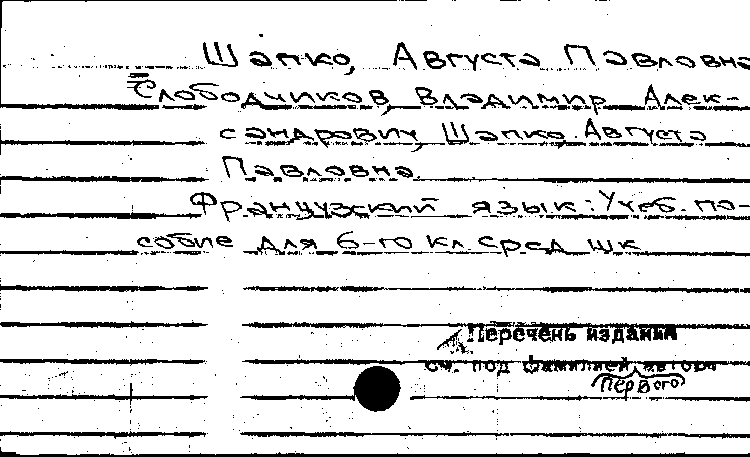 Шапко, Августа Павловна
Слободчиков, Владимир Алек-
сандрович, Шапко, Августа
Павловна
Французский язык: Учеб. по-
собие для 6-го кл. сред. шк.
Перечень издания
см. под фамилией автора
первого